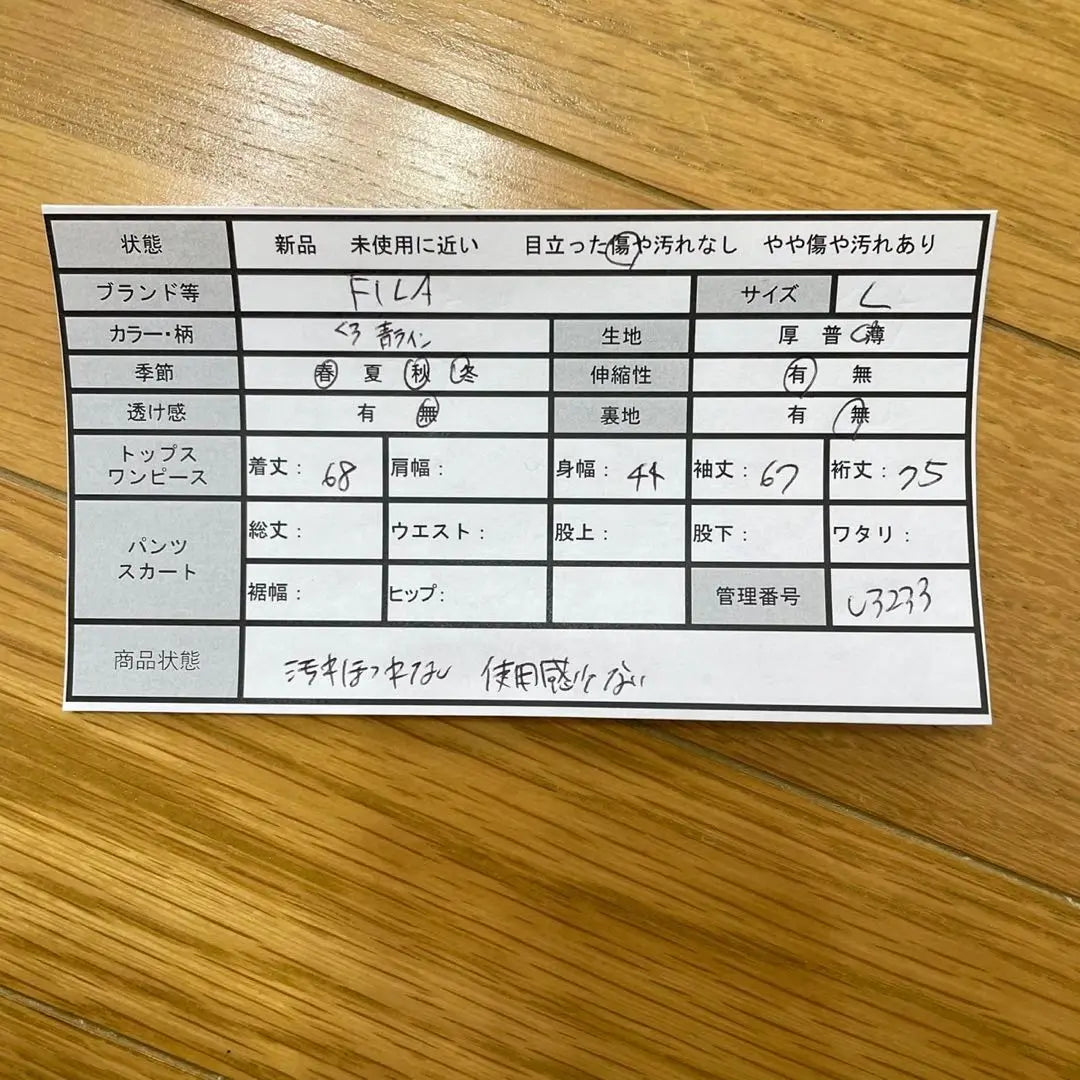 状態 新品 未使用に近い 目立った傷や汚れなし やや傷や汚れあり
ブランド等 FILA サイズ L
カラー・柄 くろ 青ライン 生地 厚 普 薄
季節 春 夏 秋 冬 伸縮性 有 無
透け感 有 無 裏地 有 無
トップス
ワンピース
着丈: 68 肩幅: 身幅: 44 袖丈: 67 裄丈: 75
パンツ
スカート
総丈: ウエスト: 股上: 股下: ワタリ:
裾幅: ヒップ: 管理番号 U3233
商品状態 汚れほつれなし 使用感少ない